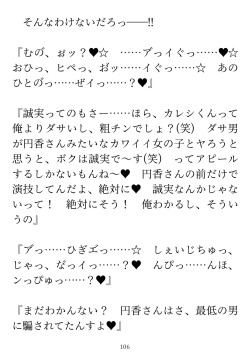 そんなわけないだろっ――!!
『むの゛、ぉッ？♥☆　……ア゛っイぐっ……♥☆
おひっ、ヒペっ、お゛ッ……イぐっ……☆　あの
ひとの゛っ……ぜイっ……？♥』
『誠実ってのもさー……ほら、カレシくんって
俺よりダサいし、粗チンでしょ？(笑)　ダサ男
が円香さんみたいなカワイイ女の子とヤろうと
思うと、ボクは誠実で〜す(笑)　ってアピール
するしかないもんね〜♥　円香さんの前だけで
演技してんだよ、絶対に♥　誠実なんかじゃな
いって！　絶対にそう！　俺わかるし、そうい
うの』
『ア゛っ……ひぎエ゛っ……☆　しぇいじちゅっ、
じゃっ、な゛っイっ……？♥　んぴっ……んほ、
ンっぴゅっ……？♥』
『まだわかんない？　円香さんはさ、最低の男
に騙されてたんすよ♥』
106